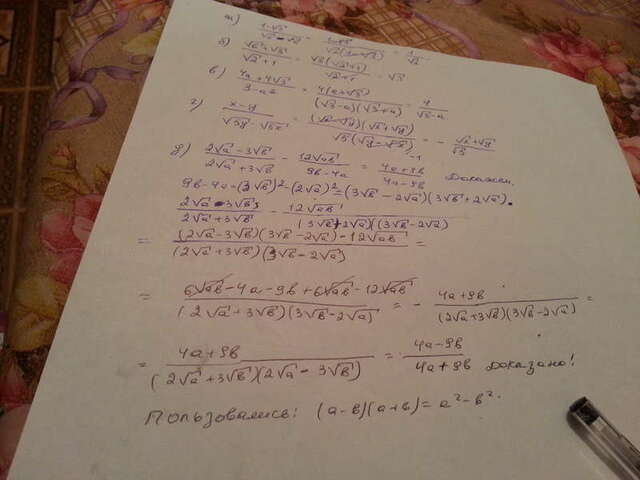 а) (1-√3)/(√2-√6) = (1-√3)/(√2(1-√3)) = 1/√2
б) (√6+√3)/(√2+1) = (√3(√2+1))/(√2+1) = √3
в) (4a+4√3)/(3-a²) = (4(a+√3))/((√3-a)(√3+a)) = 4/(√3-a)
г) (x-y)/(√5y-√5x) = ((√x-√y)(√x+√y))/(√5(√y-√x)) = - (√x+√y)/√5
-1
д) (2√a-3√b)/(2√a+3√b) - 12√ab/(9b-4a) = (4a+9b)/(4a-9b) Докажем.
9b-4a=(3√b)²-(2√a)²=(3√b-2√a)(3√b+2√a).
(2√a-3√b)/(2√a+3√b) - 12√ab/((3√b+2√a)(3√b-2√a))
= ((2√a-3√b)(3√b-2√a)-12√ab)/((2√a+3√b)(3√b-2√a)) =
= (6√ab-4a-9b+6√ab-12√ab)/((2√a+3√b)(3√b-2√a)) = - (4a+9b)/((2√a+3√b)(3√b-2√a)) =
= (4a+9b)/((2√a+3√b)(2√a-3√b)) = (4a-9b)/(4a+9b) доказано!
Пользовались: (a-b)(a+b)=a²-b².